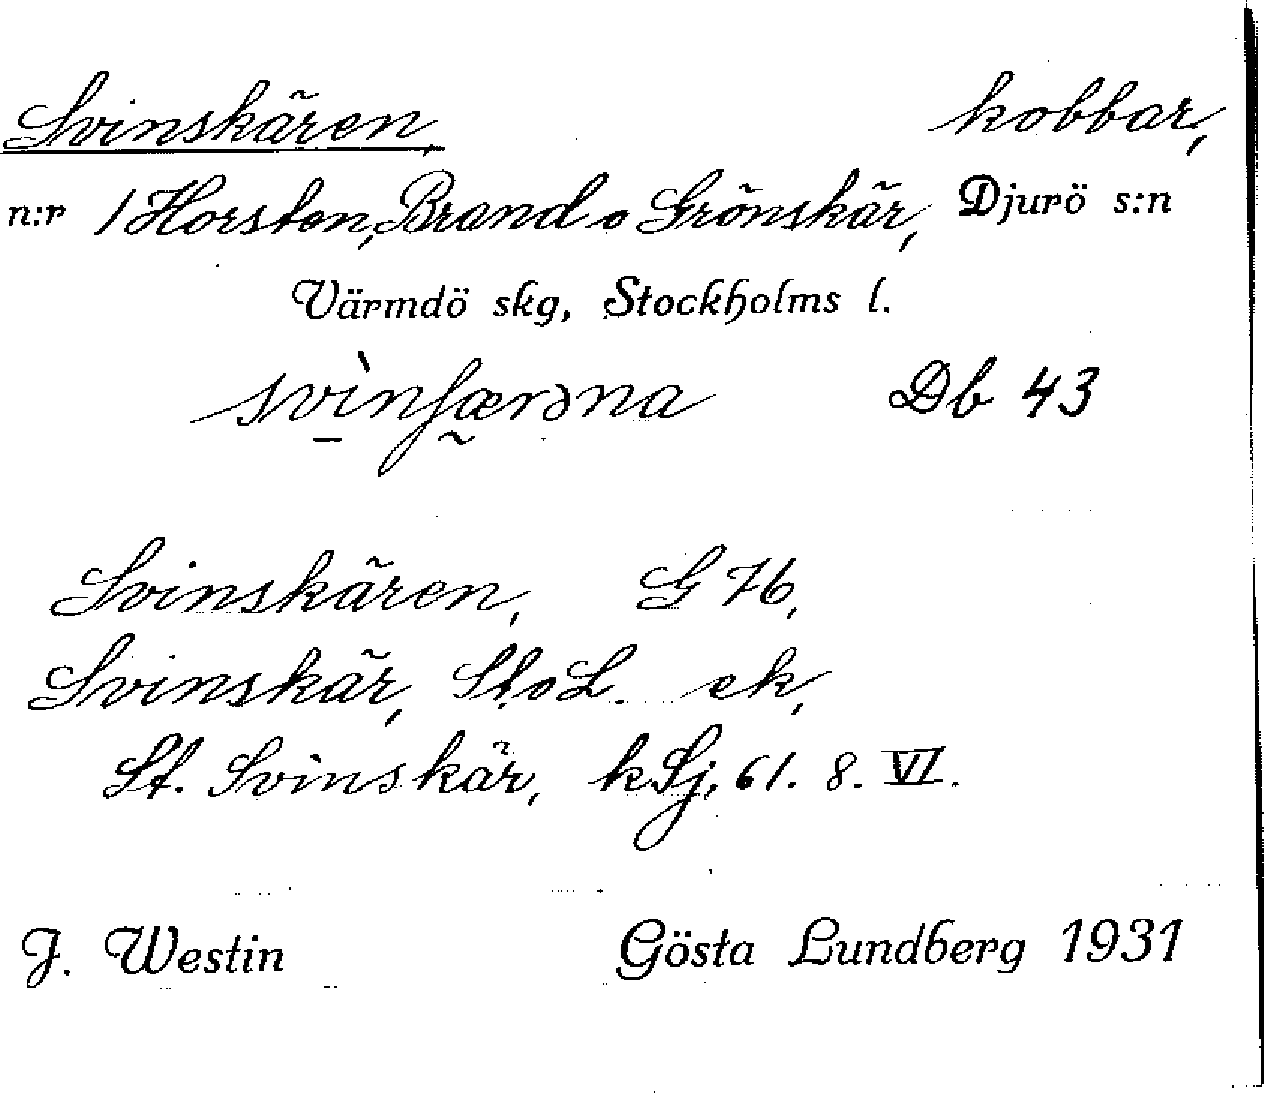 Svinskären, kobbar,
n:r 1 Horsten, Brand o Grönskär, Djurö s:n
Värmdö skg, Stockholms l.
Db 43
Svinskären, G 76,
Svinskär, StoL. ek,
St. Svinskär, kSj, 61. 8. VI.
J. Westin Gösta Lundberg 1931